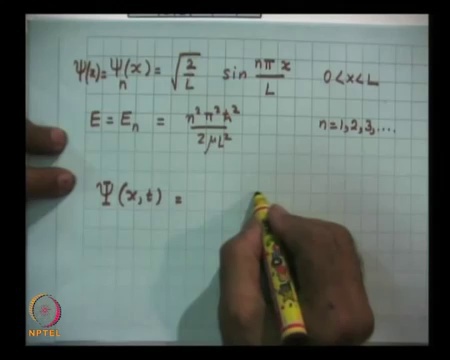 ψ(x) = ψₙ(x) = √(2/L) sin nπx/L 0 < x < L
E = Eₙ = n²π²ħ²/2μL² n = 1, 2, 3, ....
Ψ(x, t) =
NPTEL